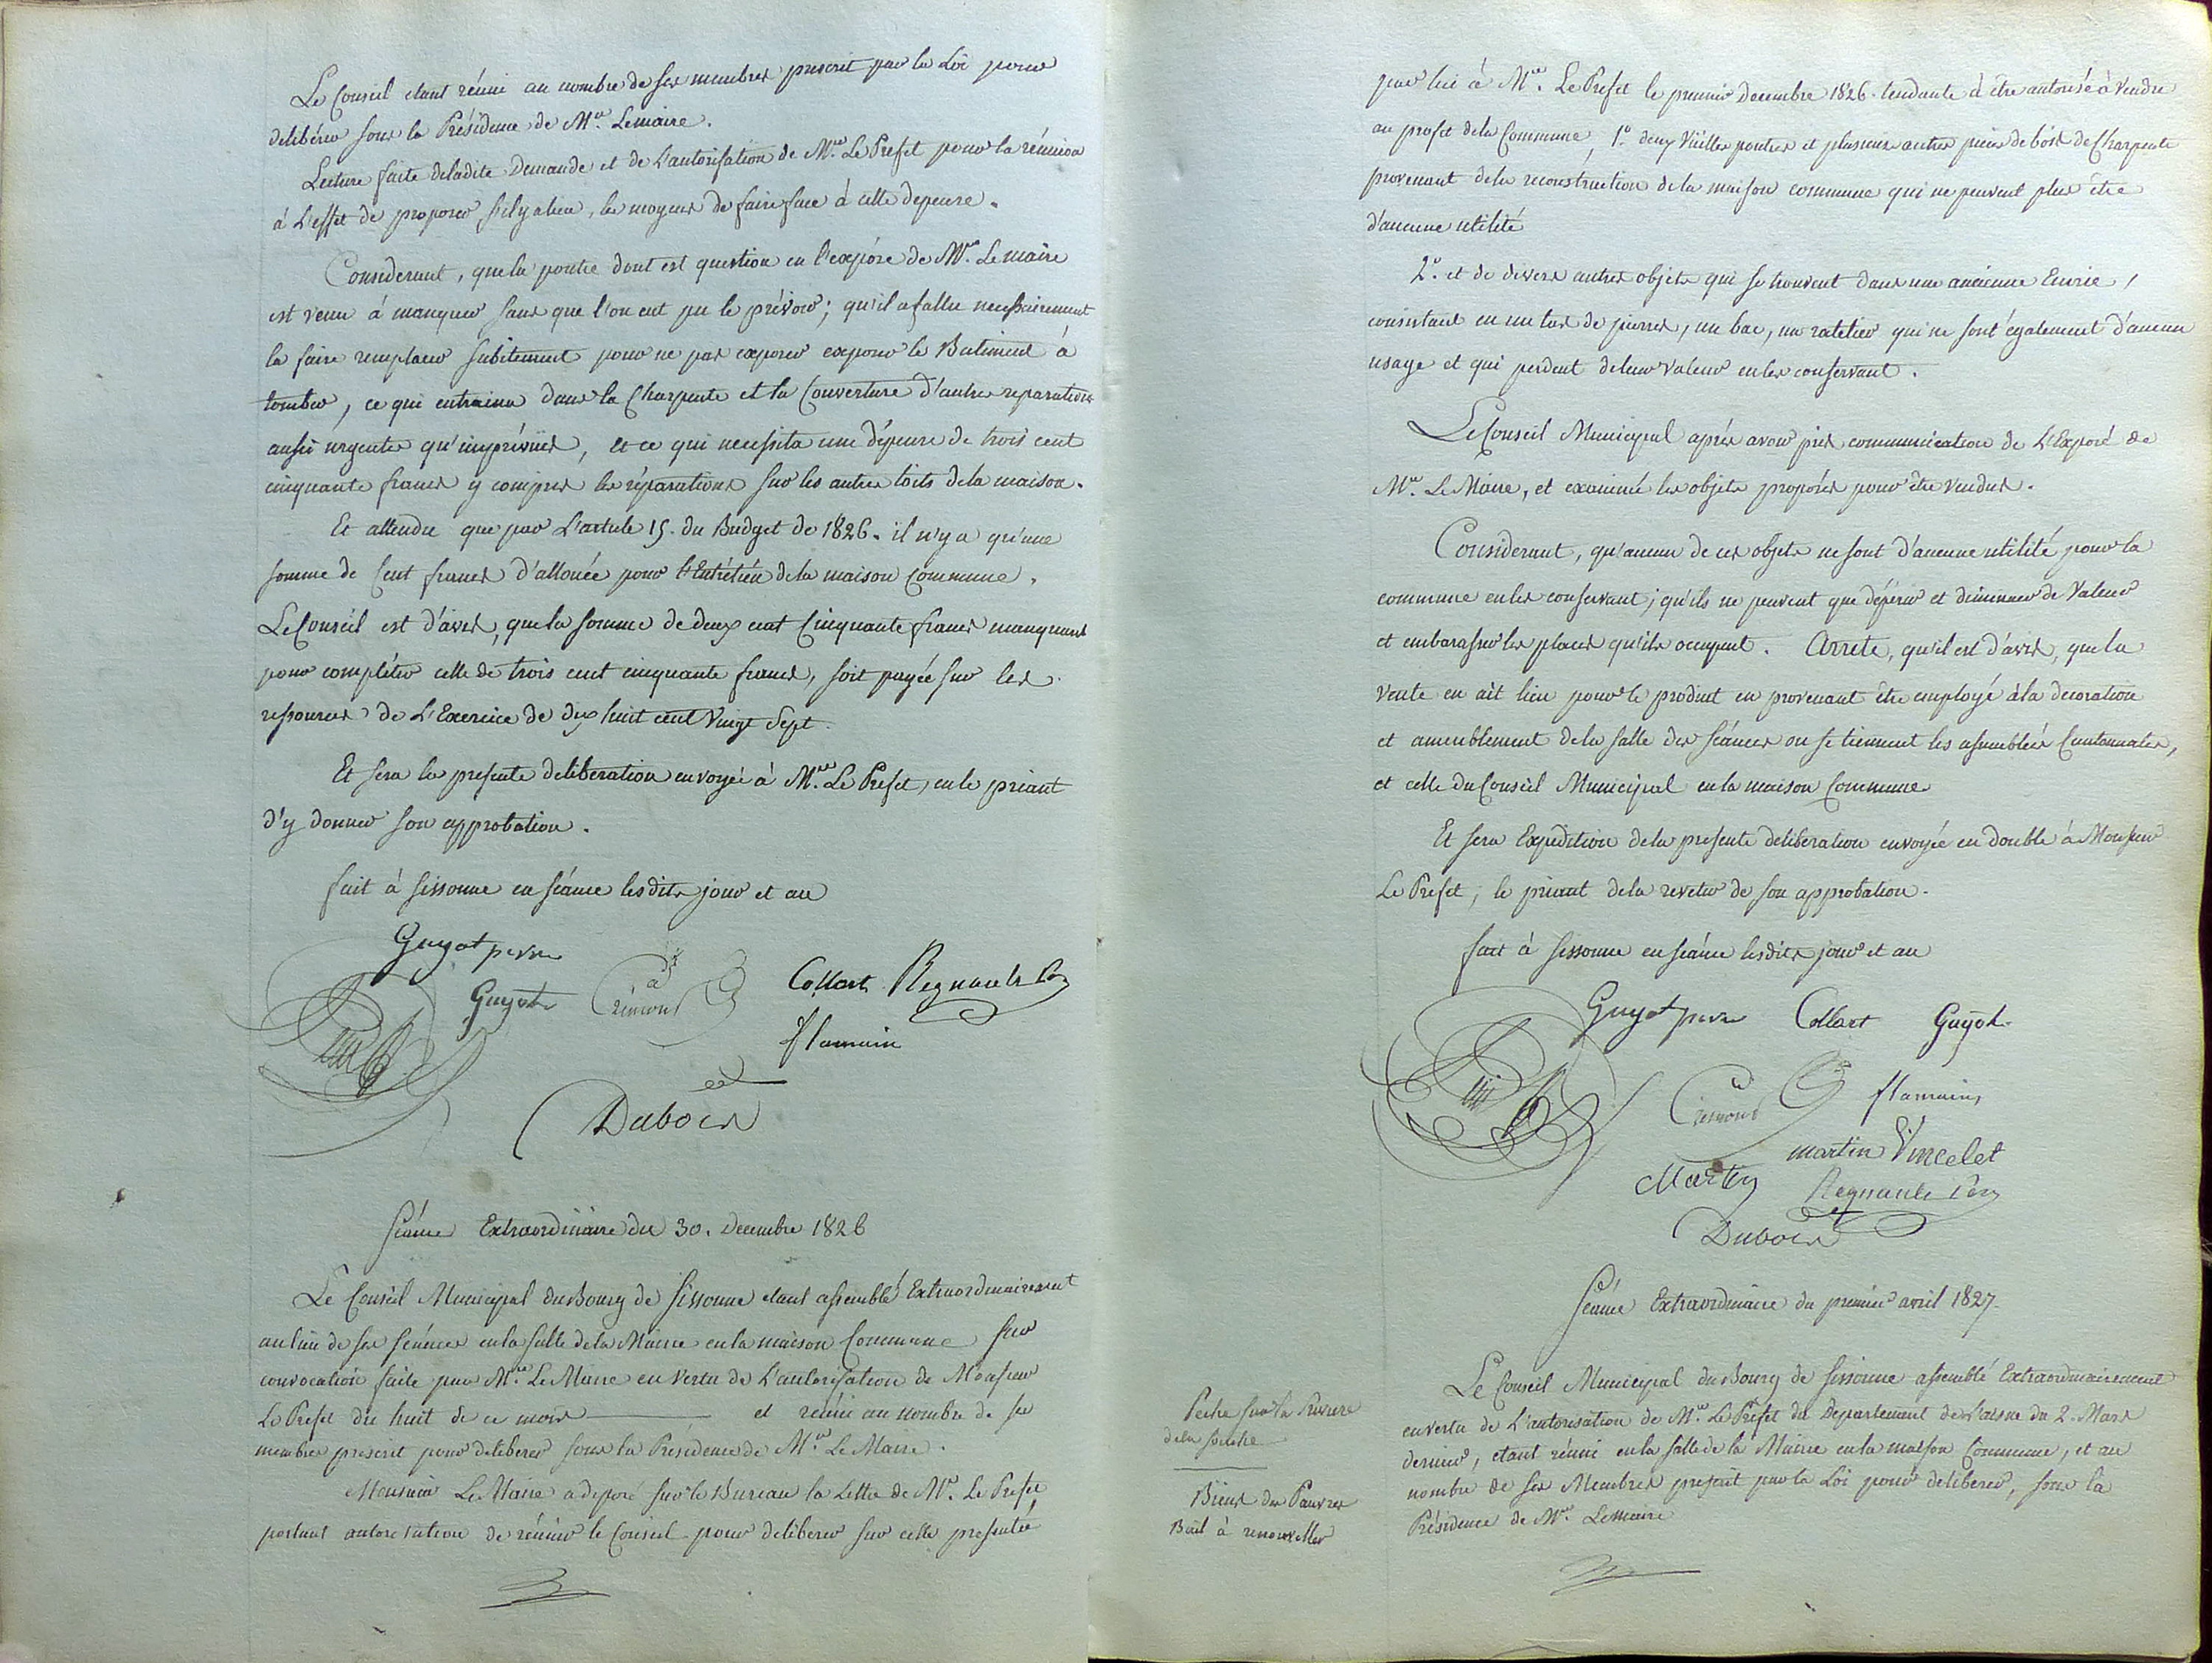 Le Conseil etant réuni au nombre de ses membres prescrit par la Loi pour
delibérer sous la Présidence de Mr. Lemaire.
Lecture faite deladite Demande et de L'autorisation de Mr. Le Prefet pour la réunion
à L'effet de proposer s'ilyalieu, les moyens de faire face à cette depense.
Considerant, que la poutre dont est question en l'exposé de Mr. Le maire
est venu à manquer sans que l'on eut pu le prévoir; qu'il a fallu necessairement
la faire remplacer subitement pour ne pas exposer exposer le Batiment à
tomber, ce qui entraina dans la Charpente et la Couverture d'autres reparations
aussi urgentes qu'imprévues, et ce qui necessita une dépense de trois cent
cinquante francs y compris les réparations sur les autres toits dela maison.
Et attendu que par L'article 15. du Budget de 1826. il n'y a qu'une
somme de Cent francs d'allouée pour l'Entrétien dela maison Commune.
Le Conseil est d'avis, que la somme de deux cent Cinquante francs manquant
pour compléter celle de trois cent cinquante francs, soit payée sur les
ressources de L'Exercice de dix huit cent Vingt Sept.
Et sera la presente deliberation envoyée à Mr. Le Prefet, en le priant
d'y donner son approbation.
fait à Sissonne en séance lesdits jour et an
Guyot
Guyot Crémont Collart Regnault
flamain
Dubois
Séance Extraordinaire du 30. Decembre 1826
Le Conseil Municipal du Bourg de Sissonne etant assemblé Extraordinairement
au lieu de ses séances en la salle de la Mairie en la maison Commune sur
convocation faite par Mr. Le Maire en vertu de L'autorisation de Monsieur
Le Prefet du huit de ce mois et réuni au nombre de ses
membres prescrit pour deliberer sous la Présidence de Mr. Le Maire.
Monsieur Le Maire a déposé sur le Bureau la Lettre de Mr. Le Prefet,
portant autorisation de réunir le Conseil pour deliberer sur celle presentée
par lui à Mr. Le Prefet le premier Decembre 1826. tendante à être autorisé à Vendre
au profit dela Commune, 1º. deux Vieilles poutres et plusieurs autres pièces de bois de Charpente
provenant dela reconstruction dela maison commune qui ne peuvent plus être
d'aucune utilité
2º. et de divers autres objets qui se trouvent dans une ancienne Ecurie,
consistant en un tas de pierres, un bac, un ratelier qui ne sont également d'aucun
usage et qui perdent de leur valeur en les conservant.
Le Conseil Municipal après avoir pris communication de L'Exposé de
Mr. Le Maire, et examiné les objets proposés pour être vendus.
Considerant, qu'aucun de ces objets ne sont d'aucune utilité pour la
commune en les conservant; qu'ils ne peuvent que dépérir et diminuer de Valeur
et embarasser les places qu'ils occupent. Arrete, qu'il est d'avis, que la
vente en ait lieu pour le produit en provenant être employé à la decoration
et ameublement dela salle des séances ou se tiennent les assemblées Cantonnales,
et celle du Conseil Municipal en la maison Commune
Et sera Expedition dela presente deliberation envoyée en double à Monsieur
Le Prefet, le priant dela revetir de son approbation.
fait à Sissonne en séance lesdits jour et an
Guyot Collart Guyot
Crémont flamain
martin Vincelet
Martin Regnault
Dubois
Séance Extraordinaire du premier avril 1827.
Peche sur la Riviere
dela
Biens des Pauvres
Bail à renouveller
Le Conseil Municipal du Bourg de Sissonne assemblé Extraordinairement
en vertu de L'autorisation de Mr. Le Prefet du Departement de L'aisne du 2. Mars
dernier, etant réuni en la salle de la Mairie en la maison Commune, et au
nombre de ses Membres prescrit par la Loi pour deliberer, sous la
Présidence de Mr. Lemaire